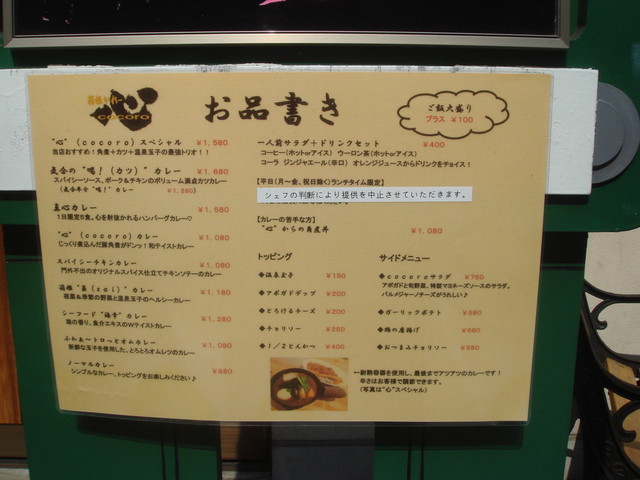 心
cocoro
お品書き
ご飯大盛り
プラス ¥100
"心"(cocoro)スペシャル ¥1,580
当店おすすめ！角煮+カツ+温泉玉子の最強トリオ！！
"喝！(カツ)"カレー ¥1,680
スパイシーソース、ポーク&チキンのボリューム満点カツカレー
カレー ¥1,580
1日限定5食。心を射抜かれるハンバーグカレー♡
"心"(cocoro)カレー ¥1,080
じっくり煮込んだ豚角煮がドンッ！和テイストカレー
スパイシーチキンカレー ¥1,080
門外不出のオリジナルスパイス仕立てチキンソテーのカレー
"菜(zai)"カレー ¥1,180
根菜&季節の野菜と温泉玉子のヘルシーカレー
シーフード"海幸"カレー ¥1,280
海の香り、魚介エキスのWテイストカレー
ふわぁ〜トロっとオムカレー ¥1,080
新鮮な玉子を使用した、とろとろオムレツのカレー
ノーマルカレー ¥880
シンプルなカレー、トッピングをお楽しみください♪
一人前サラダ+ドリンクセット ¥400
コーヒー(ホットorアイス) ウーロン茶(ホットorアイス)
コーラ ジンジャエール(辛口) オレンジジュースからドリンクをチョイス！
【平日(月〜金、祝日除く)ランチタイム限定】
シェフの判断により提供を中止させていただきます。
【カレーの苦手な方】
"心"からの角煮丼 ¥1,080
トッピング
◆温泉玉子 ¥150
◆アボガドディップ ¥200
◆とろけるチーズ ¥200
◆チョリソー ¥250
◆1/2とんかつ ¥400
サイドメニュー
◆cocoroサラダ ¥750
アボガドと旬野菜、特製マヨネーズソースのサラダ。
パルメジャーノチーズがうれしい♪
◆ガーリックポテト ¥380
◆鶏の唐揚げ ¥680
◆おつまみチョリソー ¥580
←耐熱容器を使用し、最後までアツアツのカレーです！
辛さはお客様で調節できます。
(写真は"心"スペシャル)